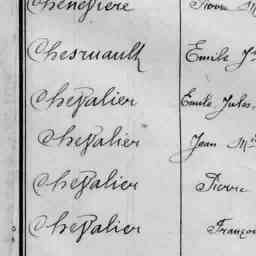 Chenevière Pierre M
Chesruault Emile J
Chevalier Emile Jules
Chevalier Jean M
Chevalier Pierre
Chevalier François